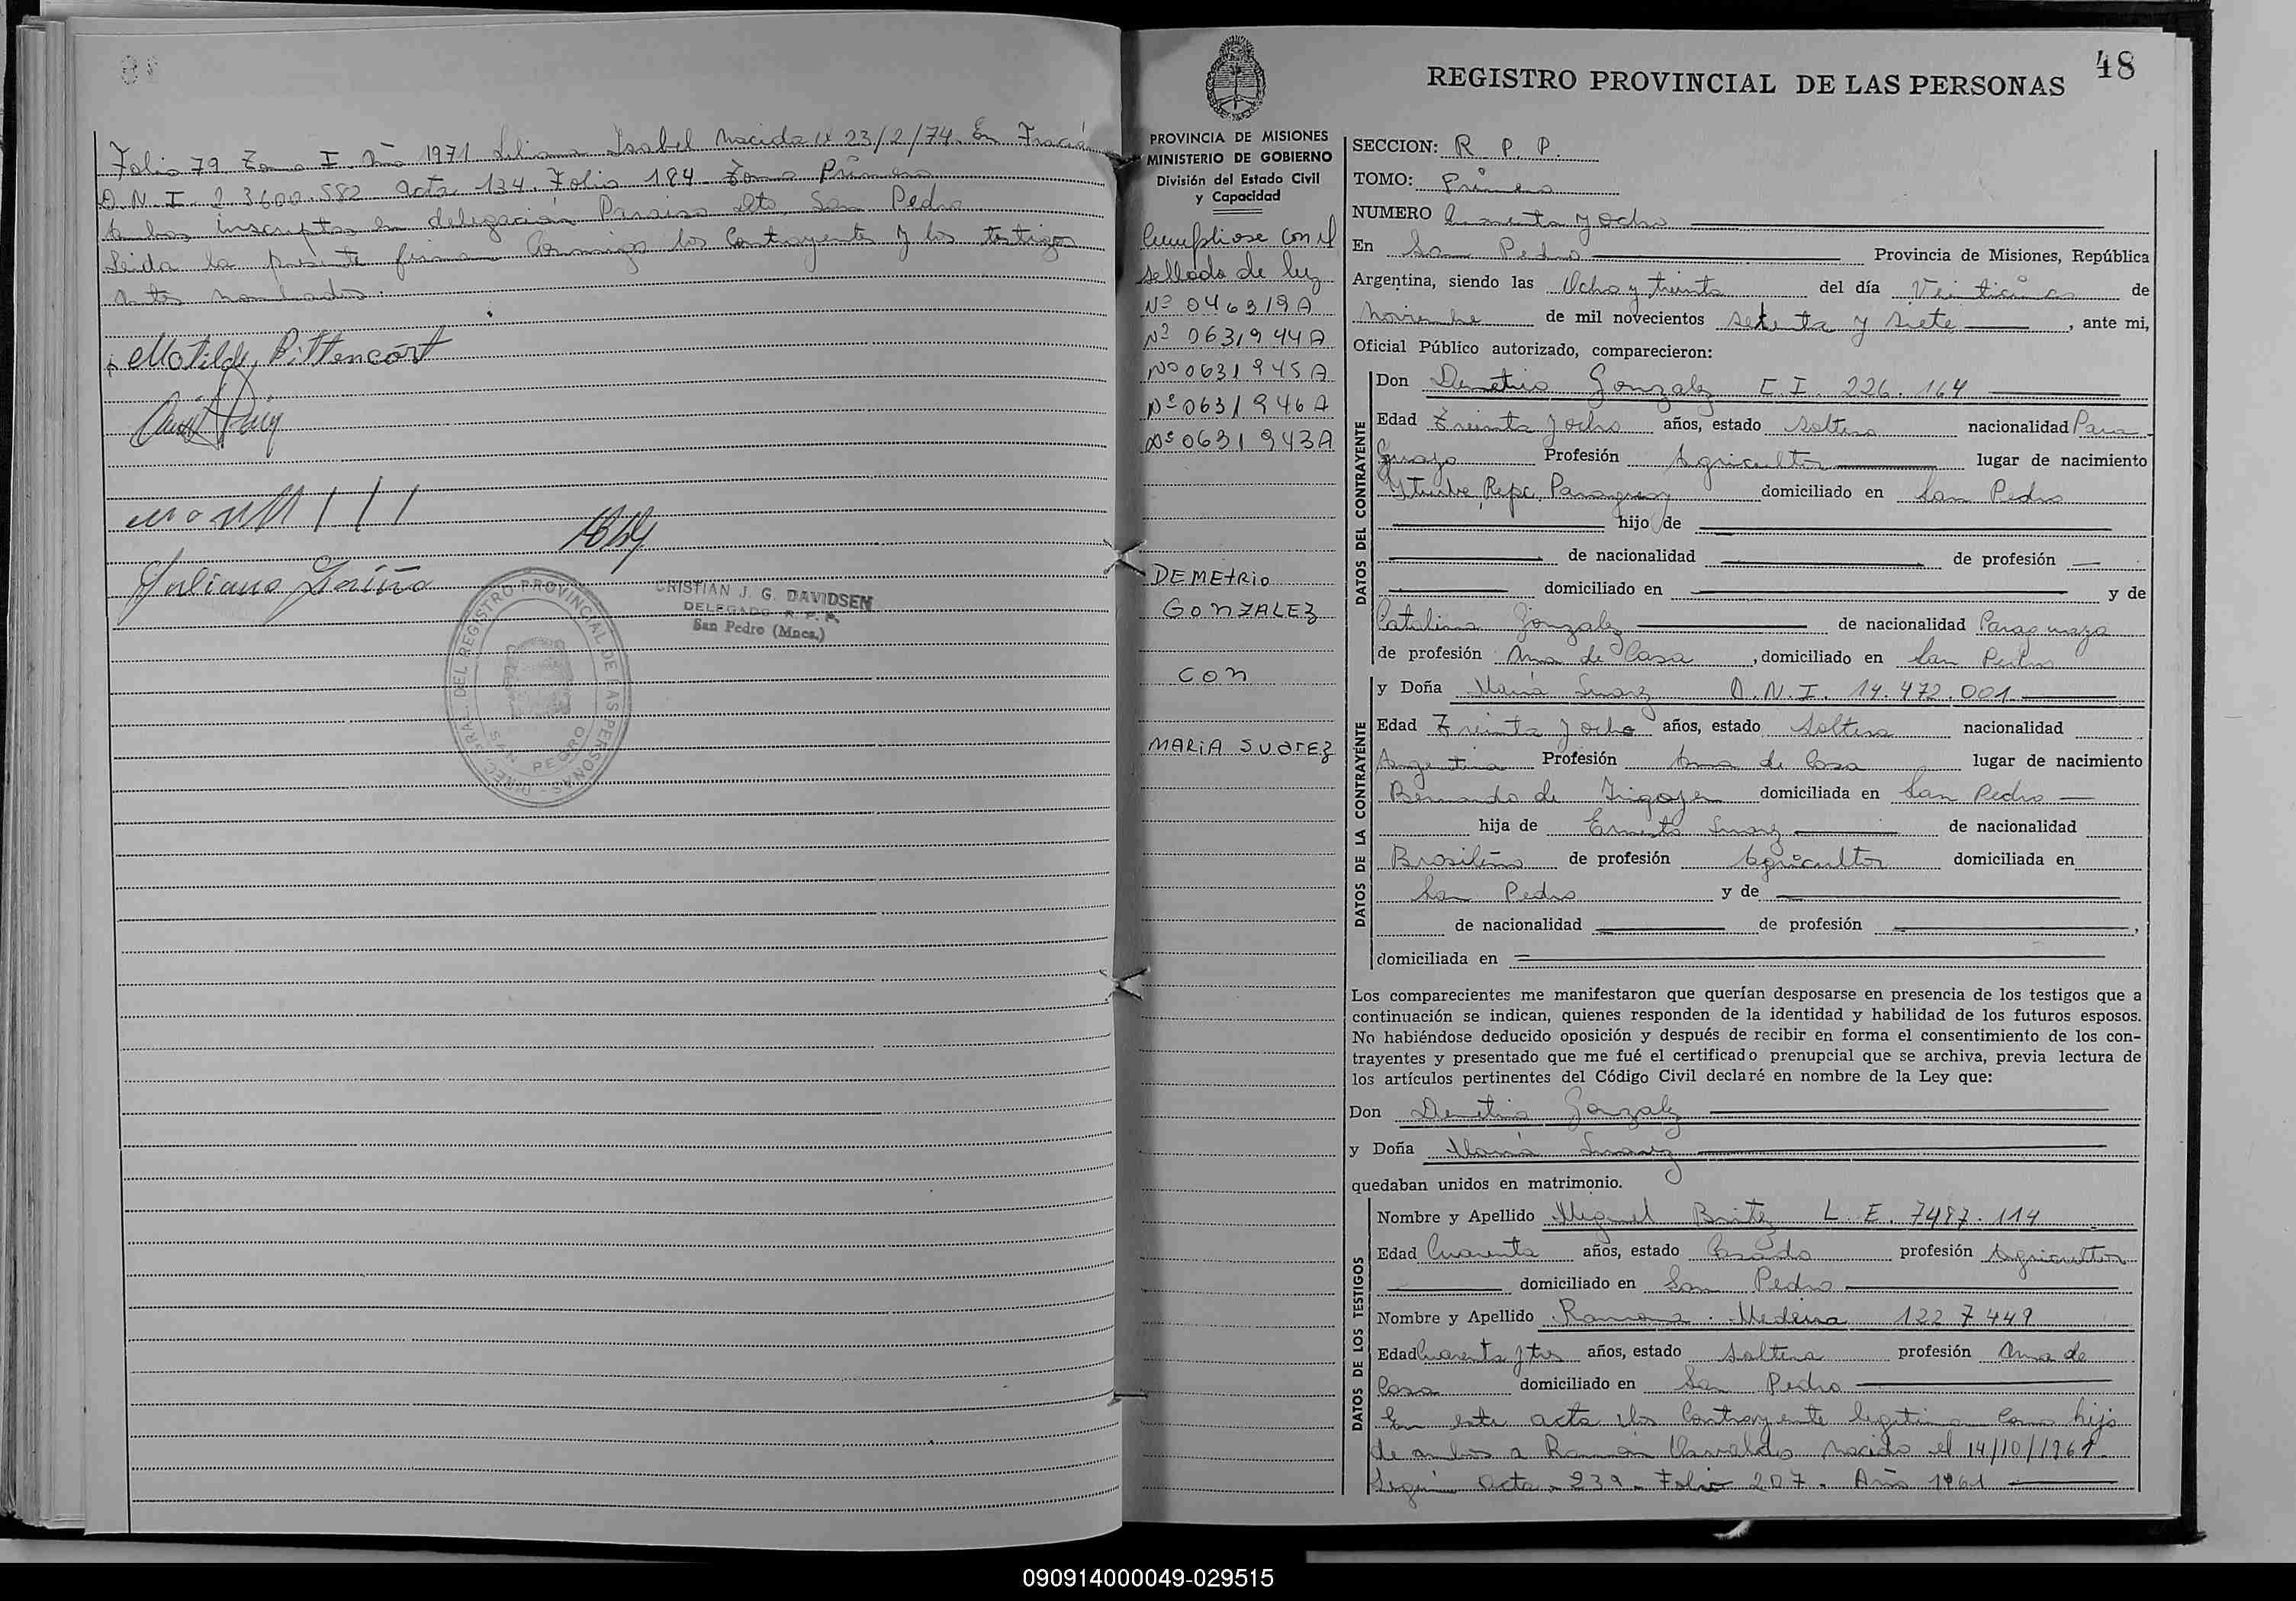 Folio 79 Tomo I Año 1971 Liliana Isabel Nacida el 23/2/74 En Fracrán
D.N.I. 23600.582 Acta 124. Folio 184 Tomo Primero
Ambos inscriptos en delegación Paraiso Dto. San Pedro
Leida la presente firman Conmigo los Contrayentes y los testigos
Antes nombrados.
Matilde Bittencort
CRISTIAN J. G. DAVIDSEN
DELEGADO R. P. P.
San Pedro (Mnes.)
REGISTRO PROVINCIAL DE LAS PERSONAS
SAN PEDRO
48
REGISTRO PROVINCIAL DE LAS PERSONAS
PROVINCIA DE MISIONES
MINISTERIO DE GOBIERNO
División del Estado Civil
y Capacidad
Cumpliose con el
sellado de ley
Nº 046319A
Nº 0631944A
Nº 0631945A
Nº 0631946A
Nº 0631943A
DEMEtRio
GONZALEZ
CON
MARiA SUarEz
SECCION: R. P. P.
TOMO: Primero
NUMERO Cuarenta y ocho
En San Pedro Provincia de Misiones, República
Argentina, siendo las Ocho y treinta del día Veinticinco de
Noviembre de mil novecientos setenta y siete, ante mi,
Oficial Público autorizado, comparecieron:
DATOS DEL CONTRAYENTE
Don Demetrio Gonzalez C.I. 226.164
Edad Treinta y ocho años, estado soltero nacionalidad Para-
guayo Profesión Agricultor lugar de nacimiento
Yturbe Repc. Paraguay domiciliado en San Pedro
hijo de
de nacionalidad de profesión
domiciliado en y de
Catalina Gonzalez de nacionalidad Paraguaya
de profesión Ama de Casa, domiciliado en San Pedro
DATOS DE LA CONTRAYENTE
y Doña María Suarez D.N.I. 14.472.001
Edad Treinta y ocho años, estado Soltera nacionalidad
Argentina Profesión Ama de Casa lugar de nacimiento
Bernardo de Irigoyen domiciliada en San Pedro
hija de Ernesto Suarez de nacionalidad
Brasileño de profesión Agricultor domiciliada en
San Pedro y de
de nacionalidad de profesión ,
domiciliada en
Los comparecientes me manifestaron que querían desposarse en presencia de los testigos que a
continuación se indican, quienes responden de la identidad y habilidad de los futuros esposos.
No habiéndose deducido oposición y después de recibir en forma el consentimiento de los con-
trayentes y presentado que me fué el certificado prenupcial que se archiva, previa lectura de
los artículos pertinentes del Código Civil declaré en nombre de la Ley que:
Don Demetrio Gonzalez
y Doña María Suarez
quedaban unidos en matrimonio.
DATOS DE LOS TESTIGOS
Nombre y Apellido Miguel Britez L.E. 7487.114
Edad Cuarenta años, estado Casado profesión Agricultor
domiciliado en San Pedro
Nombre y Apellido Ramona Medina 1227449
Edad Cuarenta y tres años, estado Soltera profesión Ama de
Casa domiciliado en San Pedro
En este acta los Contrayente legitiman Como hijo
de ambos a Ramón Osvaldo nacido el 14/10/1961
Según acta 239 Folio 207. Año 1961
090914000049-029515